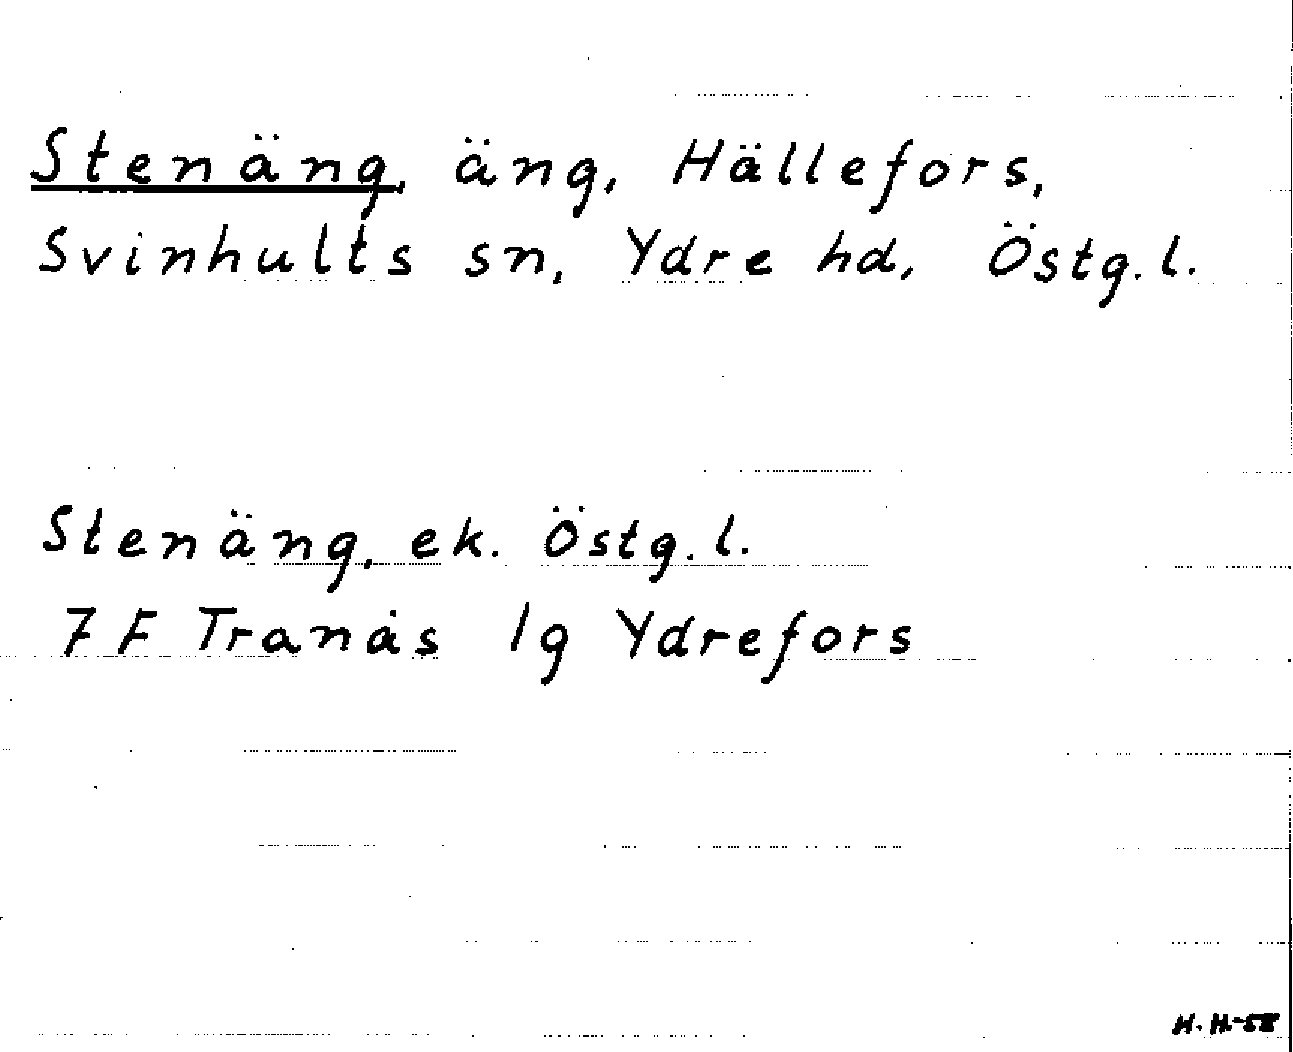 Stenäng, äng, Hällefors,
Svinhults sn, Ydre hd, Östg.l.
Stenäng, ek. Östg.l.
7 F Tranås 1g Ydrefors
H. H.-58